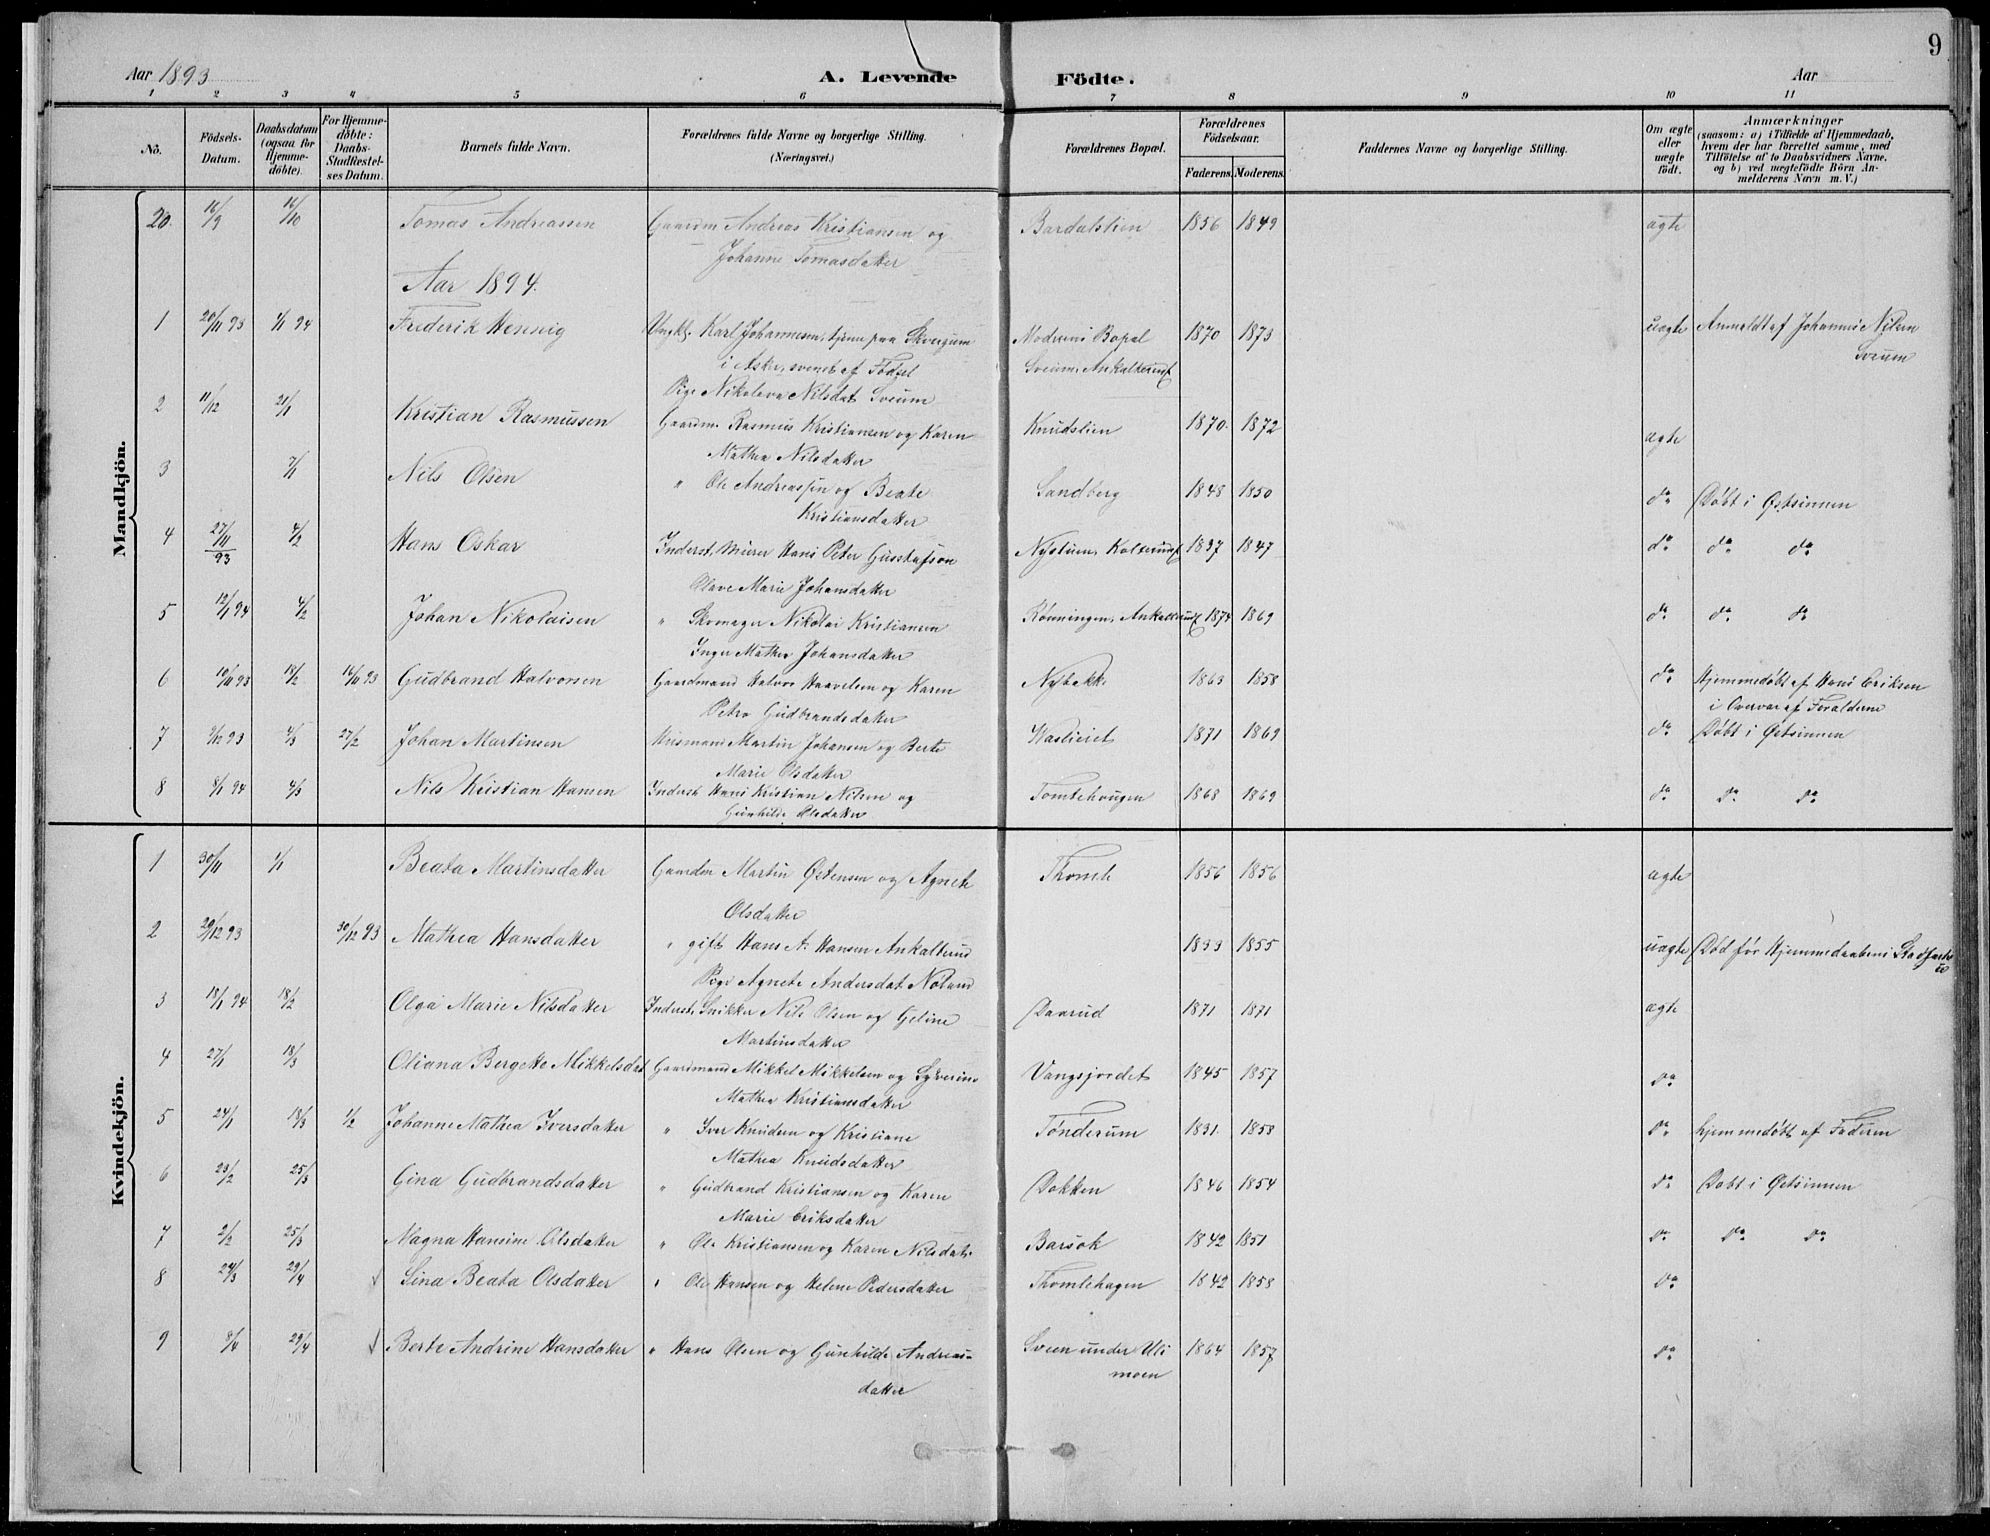 9
Aar 1893 A. Levende Födte. Aar
1 2 3 4 5 6 7 8 9 10 11
No. Födsels-Datum. Daabsdatum (ogsaa for Hjemme-döbte). For Hjemme-döbte: Daabs-Stadfæstel-ses Datum. Barnets fulde Navn. Forældrenes fulde Navne og borgerlige Stilling. (Næringsvei.) Forældrenes Bopæl. Forældrenes Födselsaar. Faderens. Moderens. Faddernes Navne og borgerlige Stilling. Om ægte eller uægte födt. Anmærkninger (saasom: a) i Tilfælde af Hjemmedaab, hvem der har forrettet samme, med Tilföielse af to Daabsvidners Navne, og b) ved uægtefödte Börn An-melderens Navn m. V.)
Mandkjön.
20. 16/9 16/10 Tomas Andreassen Gaardm Andreas Kristiansen og Bardalslien 1856 1849 ægte
Johanne Tomasdatter
Aar 1894.
1 20/11 93 1/1 94 Frederik Hennig Ungk. Karl Johannesen, tjene paa Skvegum Modrens Bopæl 1870 1873 uægte Anmeldt af Johannes Nilsen
i Asker, svensk af Fødsel Sveum, Ankalterud Sveum
Pige Nikoleva Nilsdat Sveum
2 11/12 21/1 Kristian Rasmussen Gaardm. Rasmus Kristiansen og Karen Knudslien 1870. 1872 ægte
Mathea Nilsdatter
3 7/1 Nils Olsen " Ole Andreassen og Beate Sandberg 1848 1850 do Døbt i Østsinnen
Kristiansdatter
4 27/11 93 4/2 Hans Oskar Inderst, Murer Hans Peter Gusstafson Nystuen, Kolterud 1837 1847 do do do
Olave Marie Johansdatter
5 12/1 94 4/2 Johan Nikolaisen " Skomager Nikolai Kristiansen Rønningen, Ankalterud 1874 1869 do do do
Inger Mathea Johansdatter
6 10/11 93 18/2 16/11 93 Gudbrand Halvorsen Gaardmand Halvor Haavelsen og Karen Nybakke 1863 1858 do Hjemmedøbt af Hans Eriksen
Petra Gudbrandsdatter i Overvær af Forældrene
7 9/12 93 4/3 27/2 Johan Martinsen Husmand Martin Johansen og Berte Haslieiet 1871 1869 do Døbt i Østsinnen
Marie Olsdatter
8 8/1 94 4/3 Nils Kristian Hansen Inderst Hans Kristian Nilsen og Tomtehaugen 1868 1869 do do do
Gunhilde Olsdatter
Kvindekjön.
1 30/11 1/1 Beata Martinsdatter Gaardm Martin Østensen og Agnete Thomle 1856 1856 ægte
Olsdatter
2 29/12 93 30/12 93 Mathea Hansdatter " gift Hans A. Hansen Ankalterud 1833 1855 uægte Død før Hjemmedaabens Stadfæstelse
Pige Agnete Andersdat Nøland
3 18/1 94 18/2 Olga Marie Nilsdatter Inderst, Snikker Nils Olsen og Geline Daarud 1871 1871 ægte
Martinsdatter
4 27/1 18/3 Oliana Bergette Mikkelsdat Gaardmand Mikkel Mikkelsen og Syverine Vangsjordet 1845 1857 do
Mathea Kristiansdatter
5 24/1 18/3 1/2 Johanne Mathea Iversdatter " Iver Knudsen og Kristiane Tønderum 1831. 1853 do hjemmedøbt af Faderen
Mathea Knudsdatter
6 23/2 25/3 Gina Gudbrandsdatter " Gudbrand Kristiansen og Karen Dokken 1846 1854 do Døbt i Østsinnen
Marie Eriksdatter
7 2/2 25/3 Magna Hansine Olsdatter " Ole Kristiansen og Karen Nilsdat. Barsok 1842 1851 do do do
8 24/3 29/4 Sina Beata Olsdatter " Ole Hansen og Helene Pedersdatter Thomlehagen 1842 1858 do
9 8/4 29/4 Berte Andrine Hansdatter " Hans Olsen og Gunhilde Andreas- Sveen under Uls 1864 1857 do
datter moen